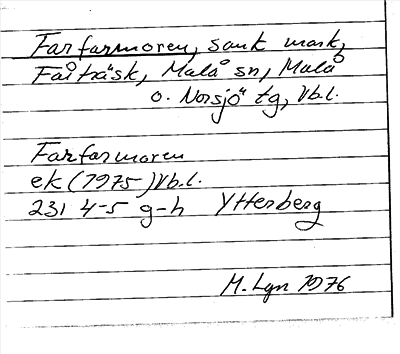 Farfarmoren, sank mark,
Fårträsk, Malå sn, Malå
o. Norsjö tg, Vb.l.
Farfarmoren
ek (1975) Vb.l.
231 4-5 g-h Ytterberg
M. Lgn 1976